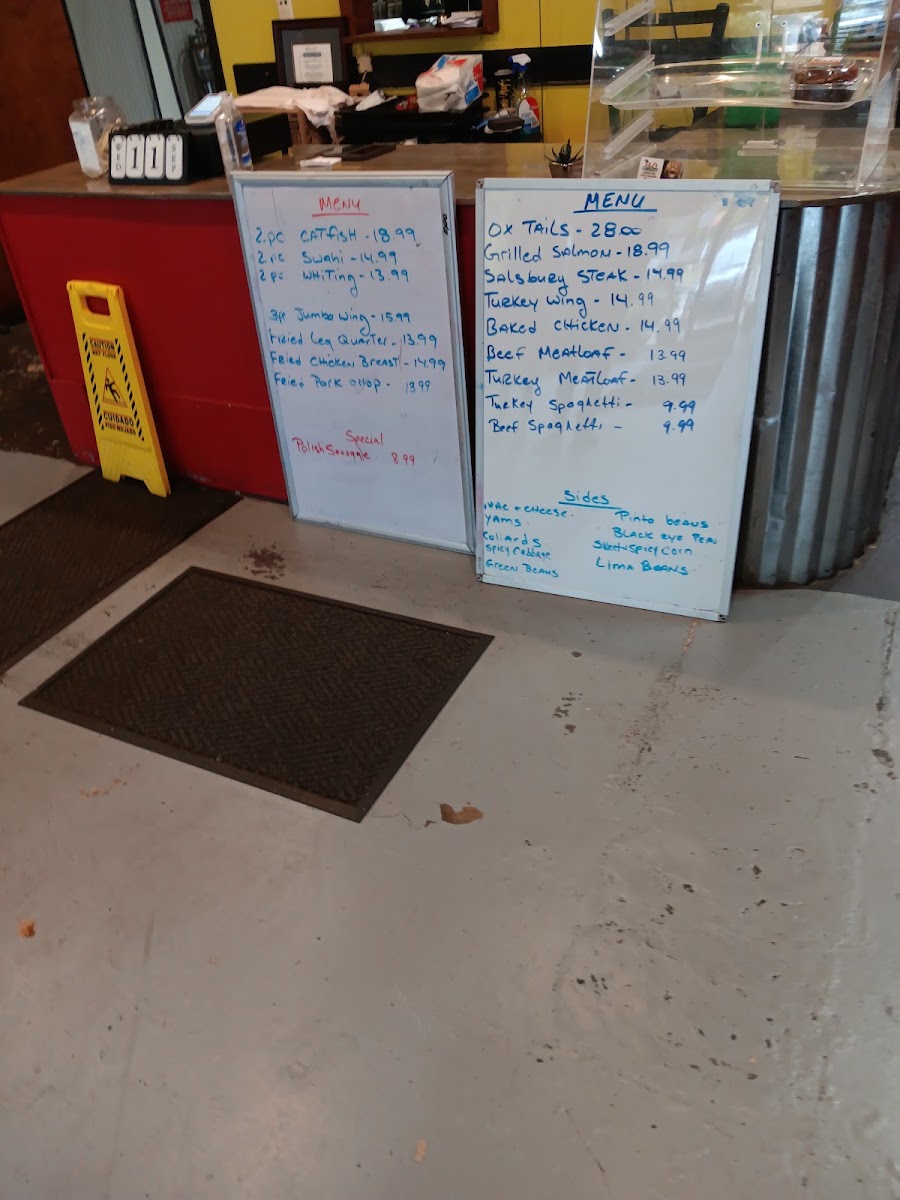 WED 11 SEP
MENU
2.pc CATfiSH - 18.99
2 pc Swahi - 14.99
2 pc WHiTing - 13.99
3pc Jumbo Wing - 15.99
Fried Leg Quarter - 13.99
Fried Chicken Breast - 14.99
Fried Pork Chop - 13.99
Special
Polish Sausagle 8.99
MENU
OX TAILS - 28.00
Grilled SALMON - 18.99
SALSbury STEAK - 14.99
Turkey Wing - 14.99
BAKED CHICKEN - 14.99
Beef MeATLoaf - 13.99
Turkey MeATLoaf - 13.99
Turkey Spaghetti - 9.99
Beef Spaghetti - 9.99
Sides
MAC + CHEESE.
YAMS.
Collards
Spicy Cabbage
GREEN BEANS
Pinto beans
BLACK eye PEAS
Sweet + SPICY CORN
LIMA BEANS
CAUTION
WET FLOOR
CUIDADO
PISO MOJADO